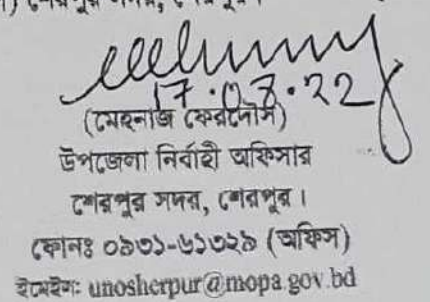 শেরপুর সদর, শেরপুর।
17.08.22
(মেহনাজ ফেরদৌস)
উপজেলা নির্বাহী অফিসার
শেরপুর সদর, শেরপুর।
ফোনঃ ০৯৩১-৬১৩২৯ (অফিস)
ইমেইল: unosherpur@mopa.gov.bd